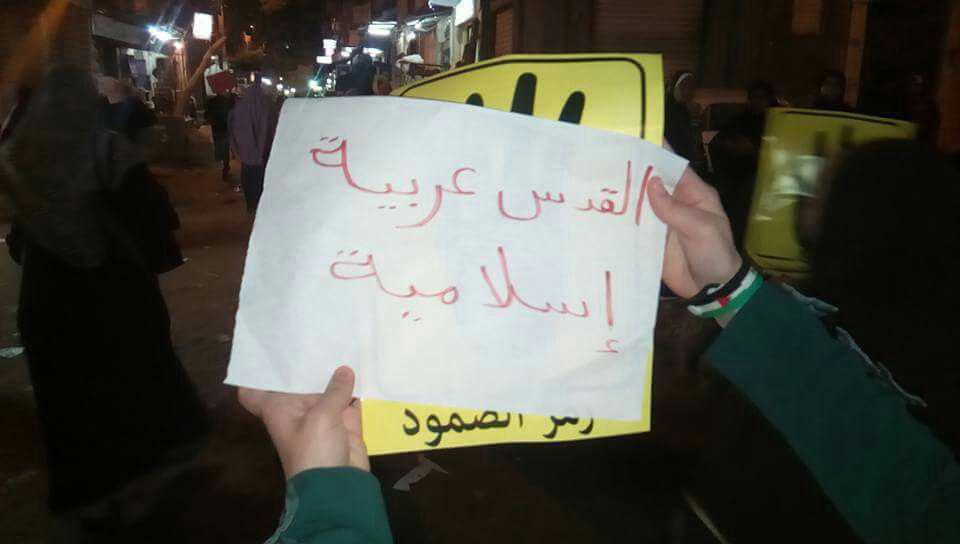 القدس عربية
إسلامية
رمز الصمود